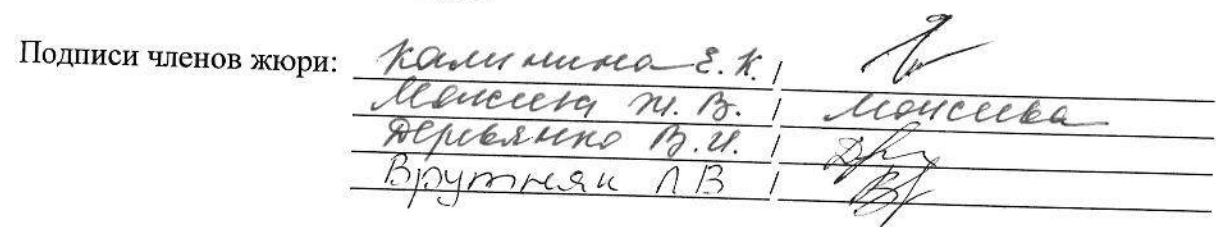 Подписи членов жюри: Калинина Е. К. /
Моисеева Ж. В. / Моисеева
Деревянко В. И. /
Врутняк Л В /